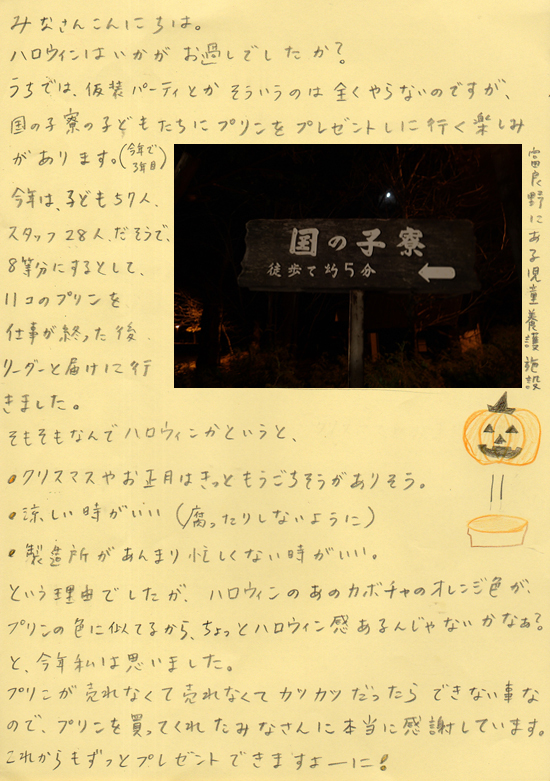 みなさんこんにちは。
ハロウィンはいかがお過しでしたか？
うちでは、仮装パーティとかそういうのは全くやらないのですが、
国の子寮の子どもたちにプリンをプレゼントしに行く楽しみ
があります。（今年で3年目）
今年は、子ども57人、
スタッフ28人、だそうで、
8等分にするとして、
11コのプリンを
仕事が終った後、
リーダーと届けに行
きました。
国の子寮
徒歩で約5分
富良野にある児童養護施設
そもそもなんでハロウィンかというと、
●クリスマスやお正月はきっともうごちそうがありそう。
●涼しい時がいい（腐ったりしないように）
●製造所があんまり忙しくない時がいい。
という理由でしたが、ハロウィンのあのカボチャのオレンジ色が、
プリンの色に似てるから、ちょっとハロウィン感あるんじゃないかなぁ？
と、今年私は思いました。
プリンが売れなくて売れなくてカツカツだったらできない事な
ので、プリンを買ってくれたみなさんに本当に感謝しています。
これからもずっとプレゼントできますよーに！